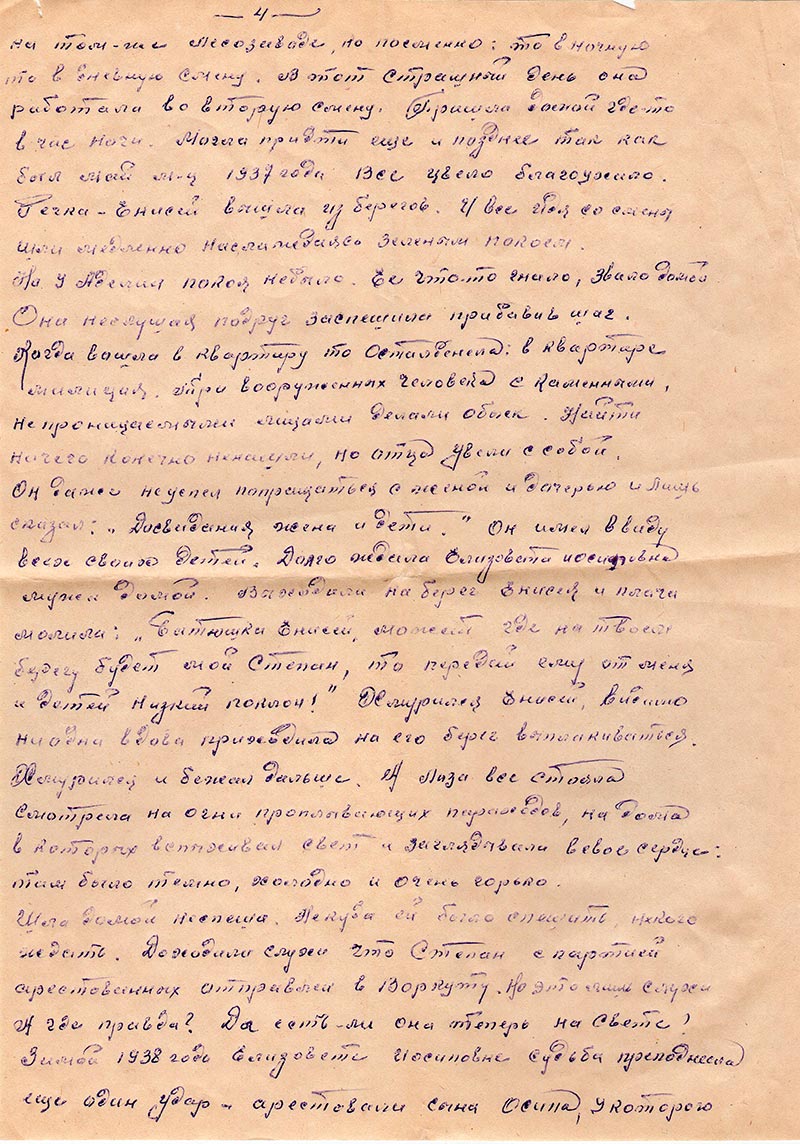 — 4 —
на том-же Лесозаваде, но посменно: то в ночную
то в дневную смену. В тот страшный день она
работала во вторую смену. Пришла домой где то
в час ночи. Могла придти еще и позднее так как
был май м-ц 1937 года Все цвело благоухало.
Речка – Енисей вышла из берегов. И все идя со смены
шли медленно наслаждаясь зеленым покоем.
Но у Аделии покоя небыло. Ее что-то гнало, звало домой
Она неслушая подруг заспешила прибавив шаг.
Когда вошла в квартиру то Остолбенела: в квартире
милиция. Три вооруженных человека с каменными,
непроницаемыми лицами делали обыск. Найти
ничего конечно ненашли, но отца увели с собой.
Он даже неуспел попращаться с женой и дочерью и лишь
сказал: „Досвидания жена и дети." Он имел ввиду
всех своих детей. Долго ждала Елизовета иосиповна
мужа домой. Выходила на берег Енисея и плача
молила: „Батюшка Енисей, может где на твоем
берегу будет мой Степан, то передай ему от меня
и детей низкий поклон!" Хмурился Енисей, видимо
ниодна вдова приходила на его берег выплакиваться.
Хмурился и бежал дальше. А Лиза все стояла
смотрела на огни проплывающих пароходов, на дома
в которых вспыхивал свет и заглядывала в свое сердце:
там было темно, холодно и очень горько.
Шла домой неспеша. Некуда ей было спешить, некого
ждать. Доходили слухи что Степан с партией
арестованных отправлен в Воркуту. Но это лишь слухи
А где правда? Да есть-ли она теперь на свете!
Зимой 1938 года Елизовете Иосиповне судьба преподнесла
еще один удар – арестовали сына Осипа, у которого